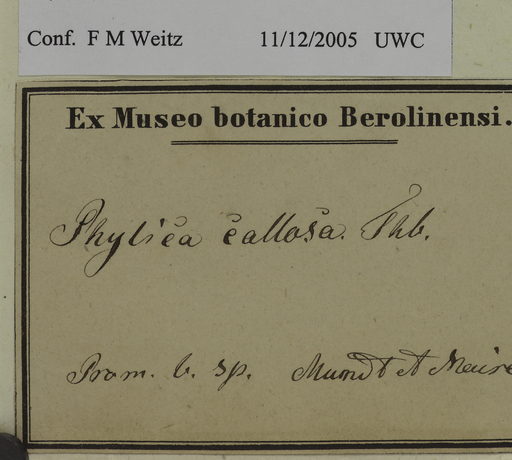 Conf. F M Weitz 11/12/2005 UWC
Ex Museo botanico Berolinensi.
Phylica callosa. Thb.
Prom. b. sp. Mundt et Maire